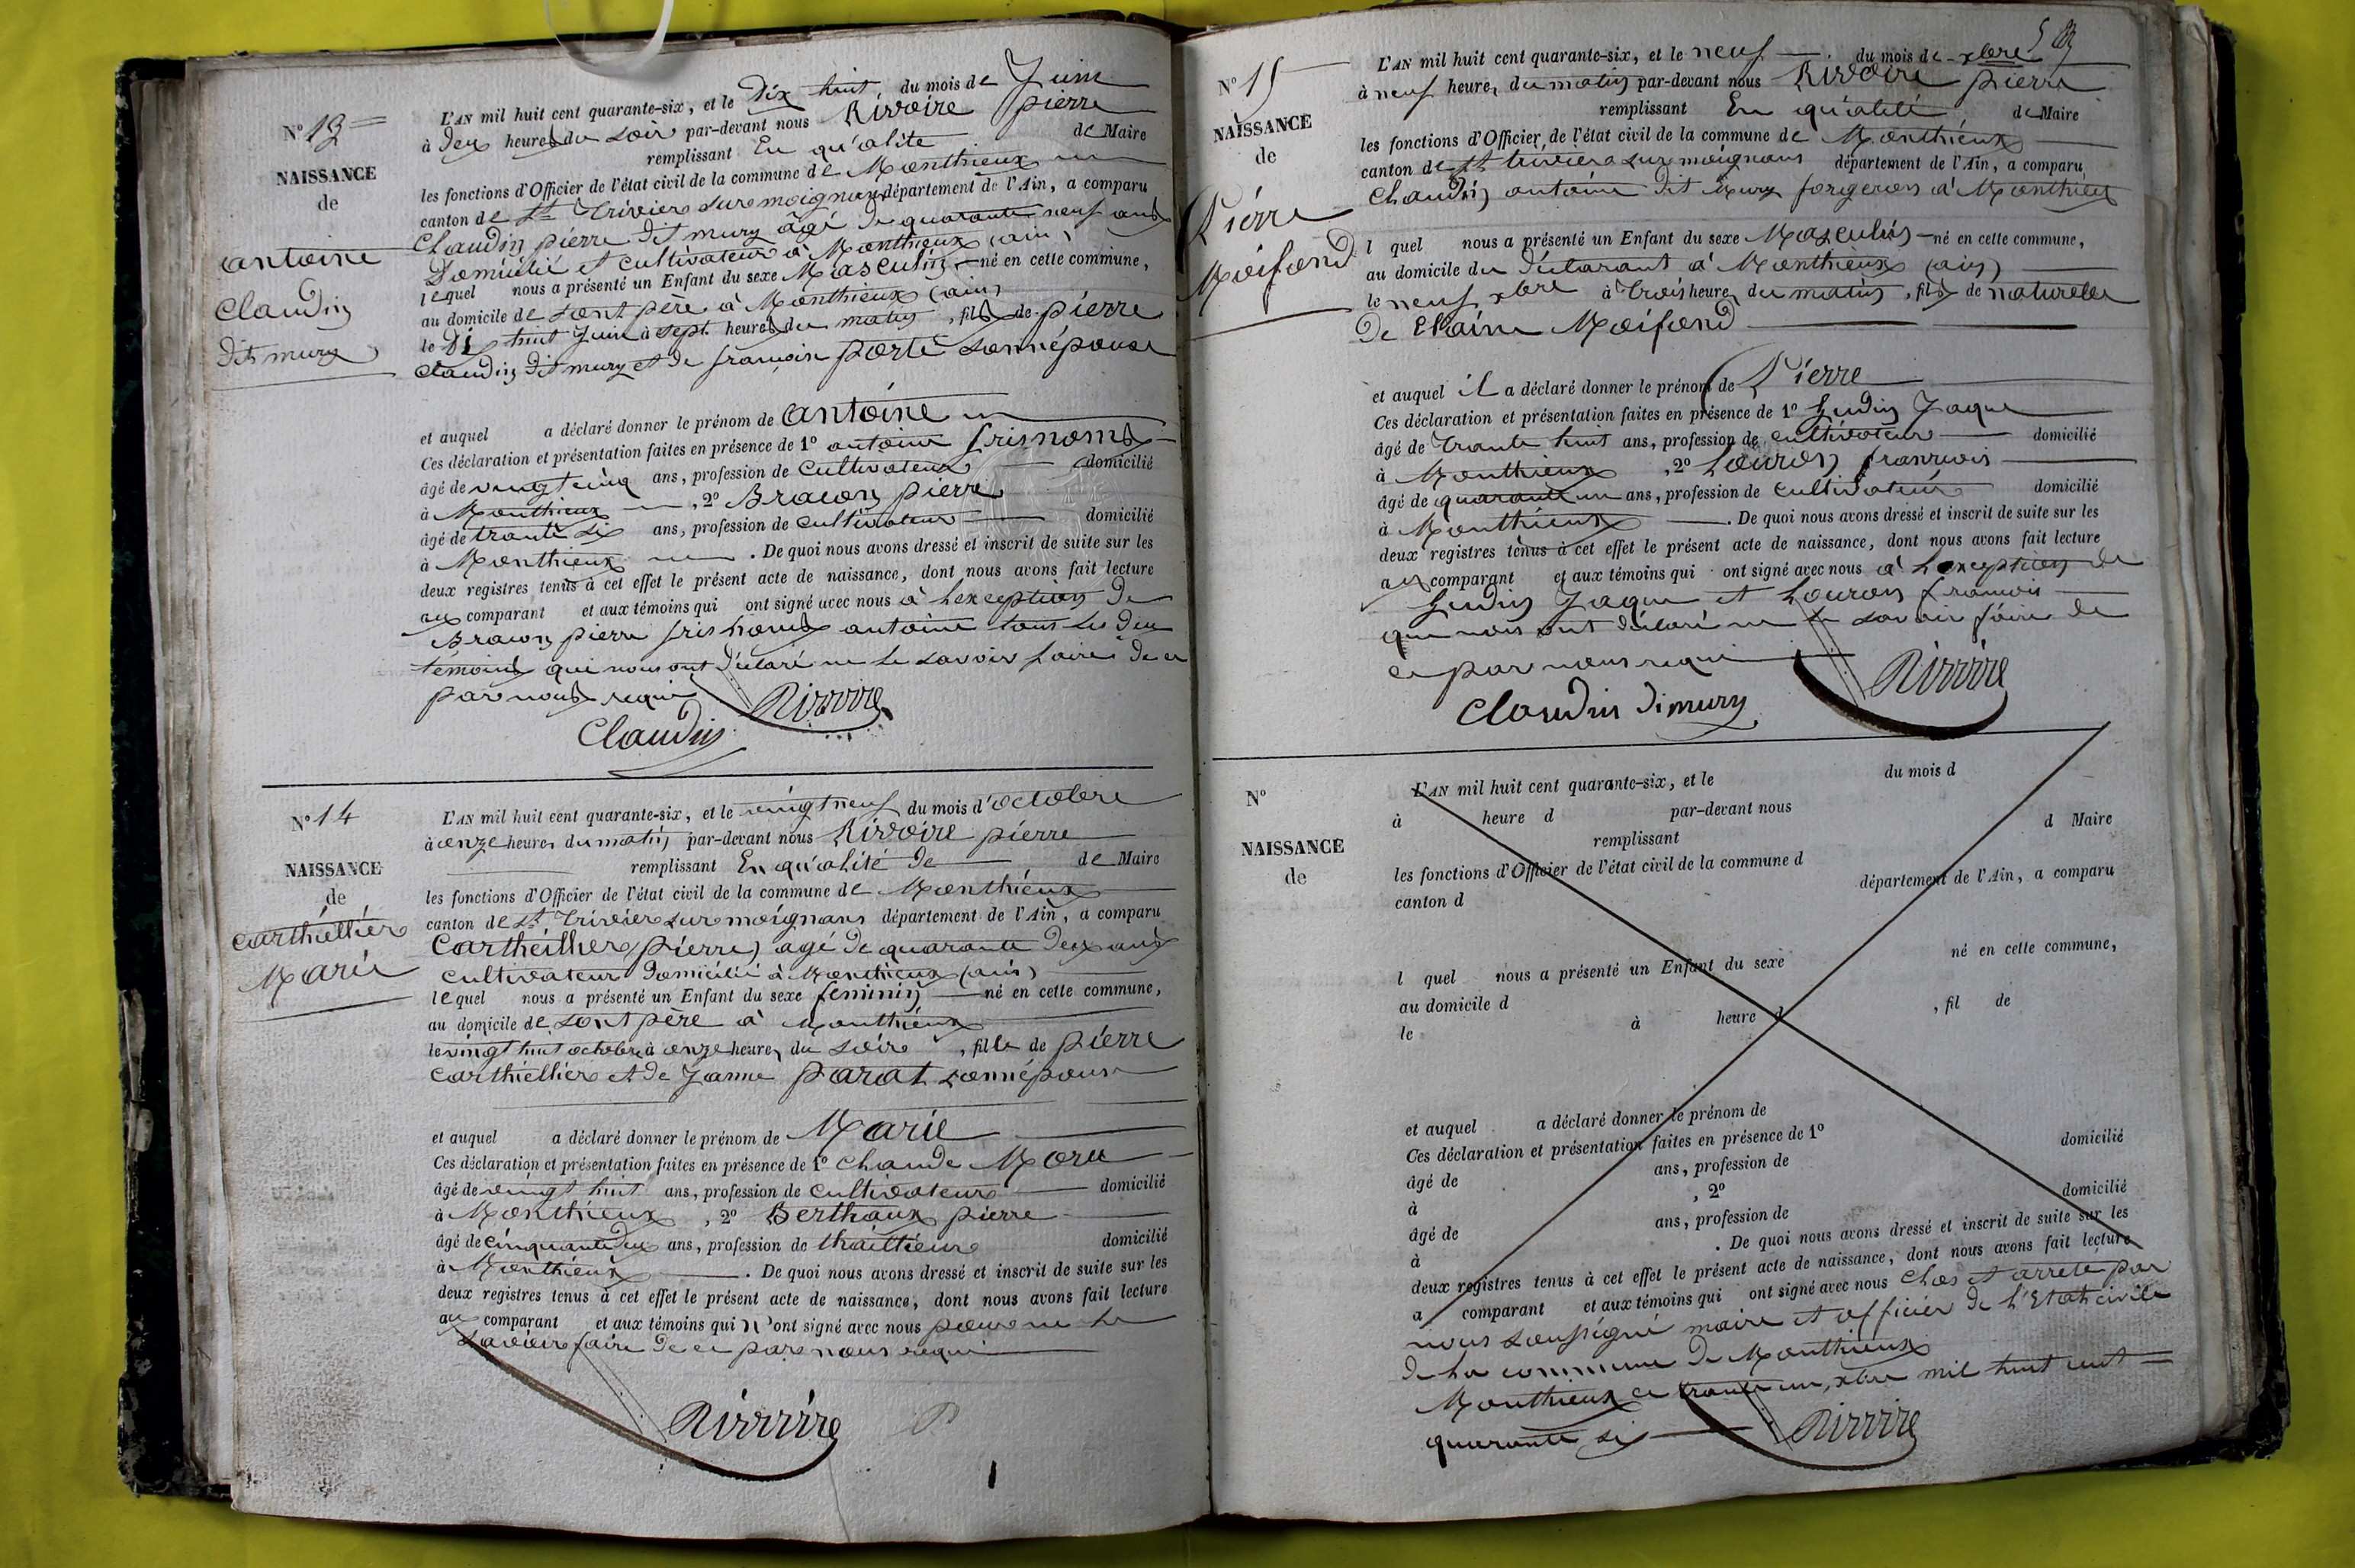 N° 13
NAISSANCE
de
antoine
Claudin
dit mury
L'AN mil huit cent quarante-six, et le dix huit, du mois de Juin
à deux heures du soir par-devant nous Rivoire pierre
remplissant En qu'alité de Maire
les fonctions d'Officier de l'état civil de la commune de Monthieux
canton de St Trivier sur moignans département de l'Ain, a comparu
Claudin pierre dit mury âgé de quarante neuf ans
Domicilié et cultivateur à Monthieux (ain)
lequel nous a présenté un Enfant du sexe Masculin né en cette commune,
au domicile de sont père à Monthieux (ain)
le dix huit Juin à sept heures du matin, fils de pierre
Claudin dit mury et de françoise porte sonnépouse
et auquel a déclaré donner le prénom de antoine
Ces déclaration et présentation faites en présence de 1° antoine
âgé de vingt cinq ans, profession de Cultivateur domicilié
à Monthieux, 2° Bracon pierre
âgé de trante six ans, profession de Cultivateur domicilié
à Monthieux. De quoi nous avons dressé et inscrit de suite sur les
deux registres tenus à cet effet le présent acte de naissance, dont nous avons fait lecture
aux comparant et aux témoins qui ont signé avec nous à l'exception de
Bracon pierre antoine tous les deux
témoins qui nous ont déclaré ne le savoir faire de ce
par nous requi
Rivoire
Claudin
N° 14
NAISSANCE
de
Carthellier
Marie
L'AN mil huit cent quarante-six, et le vingt neuf du mois d'octobre
à onze heures du matin par-devant nous Rivoire pierre
remplissant En qu'alité de de Maire
les fonctions d'Officier de l'état civil de la commune de Monthieux
canton de St Trivier sur moignans département de l'Ain, a comparu
Cartheillier (pierre) agé de quarante deux ans
Cultivateur domicilié à Monthieux (ain)
lequel nous a présenté un Enfant du sexe feminin né en cette commune,
au domicile de sont père à Monthieux
le vingt huit octobre à onze heures du soire, fille de pierre
Carthiellier et de Janne parat sonnépouse
et auquel a déclaré donner le prénom de Marie
Ces déclaration et présentation faites en présence de 1° Claude Moru
âgé de vingt huit ans, profession de Cultivateur domicilié
à Monthieux, 2° Berthaux pierre
âgé de cinquante deux ans, profession de thaillieur domicilié
à Monthieux. De quoi nous avons dressé et inscrit de suite sur les
deux registres tenus à cet effet le présent acte de naissance, dont nous avons fait lecture
aux comparant et aux témoins qui n'ont signé avec nous pour ne le
savoir faire de ce par nous requi
Rivoire
N° 15
NAISSANCE
de
Pierre
Moifond
L'AN mil huit cent quarante-six, et le neuf du mois de xbre
à neuf heures du matin par-devant nous Rivoire pierre
remplissant En qu'alité de Maire
les fonctions d'Officier de l'état civil de la commune de Monthieux
canton de St Trivier sur moignans département de l'Ain, a comparu
Claudin antoine dit Mury forgeron à Monthieux
l quel nous a présenté un Enfant du sexe Masculin né en cette commune,
au domicile du déclarant à Monthieux (ain)
le neuf xbre à trois heures du matin, fils de naturelle
De Moifond
et auquel il a déclaré donner le prénom de Pierre
Ces déclaration et présentation faites en présence de 1° Gudin Jaque
âgé de trante huit ans, profession de cultivateur domicilié
à Monthieux, 2° Louron françois
âgé de quarante un ans, profession de Cultivateur domicilié
à Monthieux. De quoi nous avons dressé et inscrit de suite sur les
deux registres tenus à cet effet le présent acte de naissance, dont nous avons fait lecture
aux comparant et aux témoins qui ont signé avec nous à l'exception de
Gudin Jaque et Louron françois
que nous ont déclaré ne le savoir faire de
ce par nous requi
Rivoire
Claudin dimury
N°
NAISSANCE
de
L'AN mil huit cent quarante-six, et le du mois d
à heure d par-devant nous
remplissant d Maire
les fonctions d'Officier de l'état civil de la commune d
canton d département de l'Ain, a comparu
l quel nous a présenté un Enfant du sexe né en cette commune,
au domicile d
le à heure d, fil de
et auquel a déclaré donner le prénom de
Ces déclaration et présentation faites en présence de 1°
âgé de ans, profession de domicilié
à, 2°
âgé de ans, profession de domicilié
à. De quoi nous avons dressé et inscrit de suite sur les
deux registres tenus à cet effet le présent acte de naissance, dont nous avons fait lecture
a comparant et aux témoins qui ont signé avec nous Clos et arrete par
nous soussigné maire et officier de l'Etat civile
de la commune de Monthieux
Monthieux ce trante un, xbre mil huit cent
quarante six
Rivoire